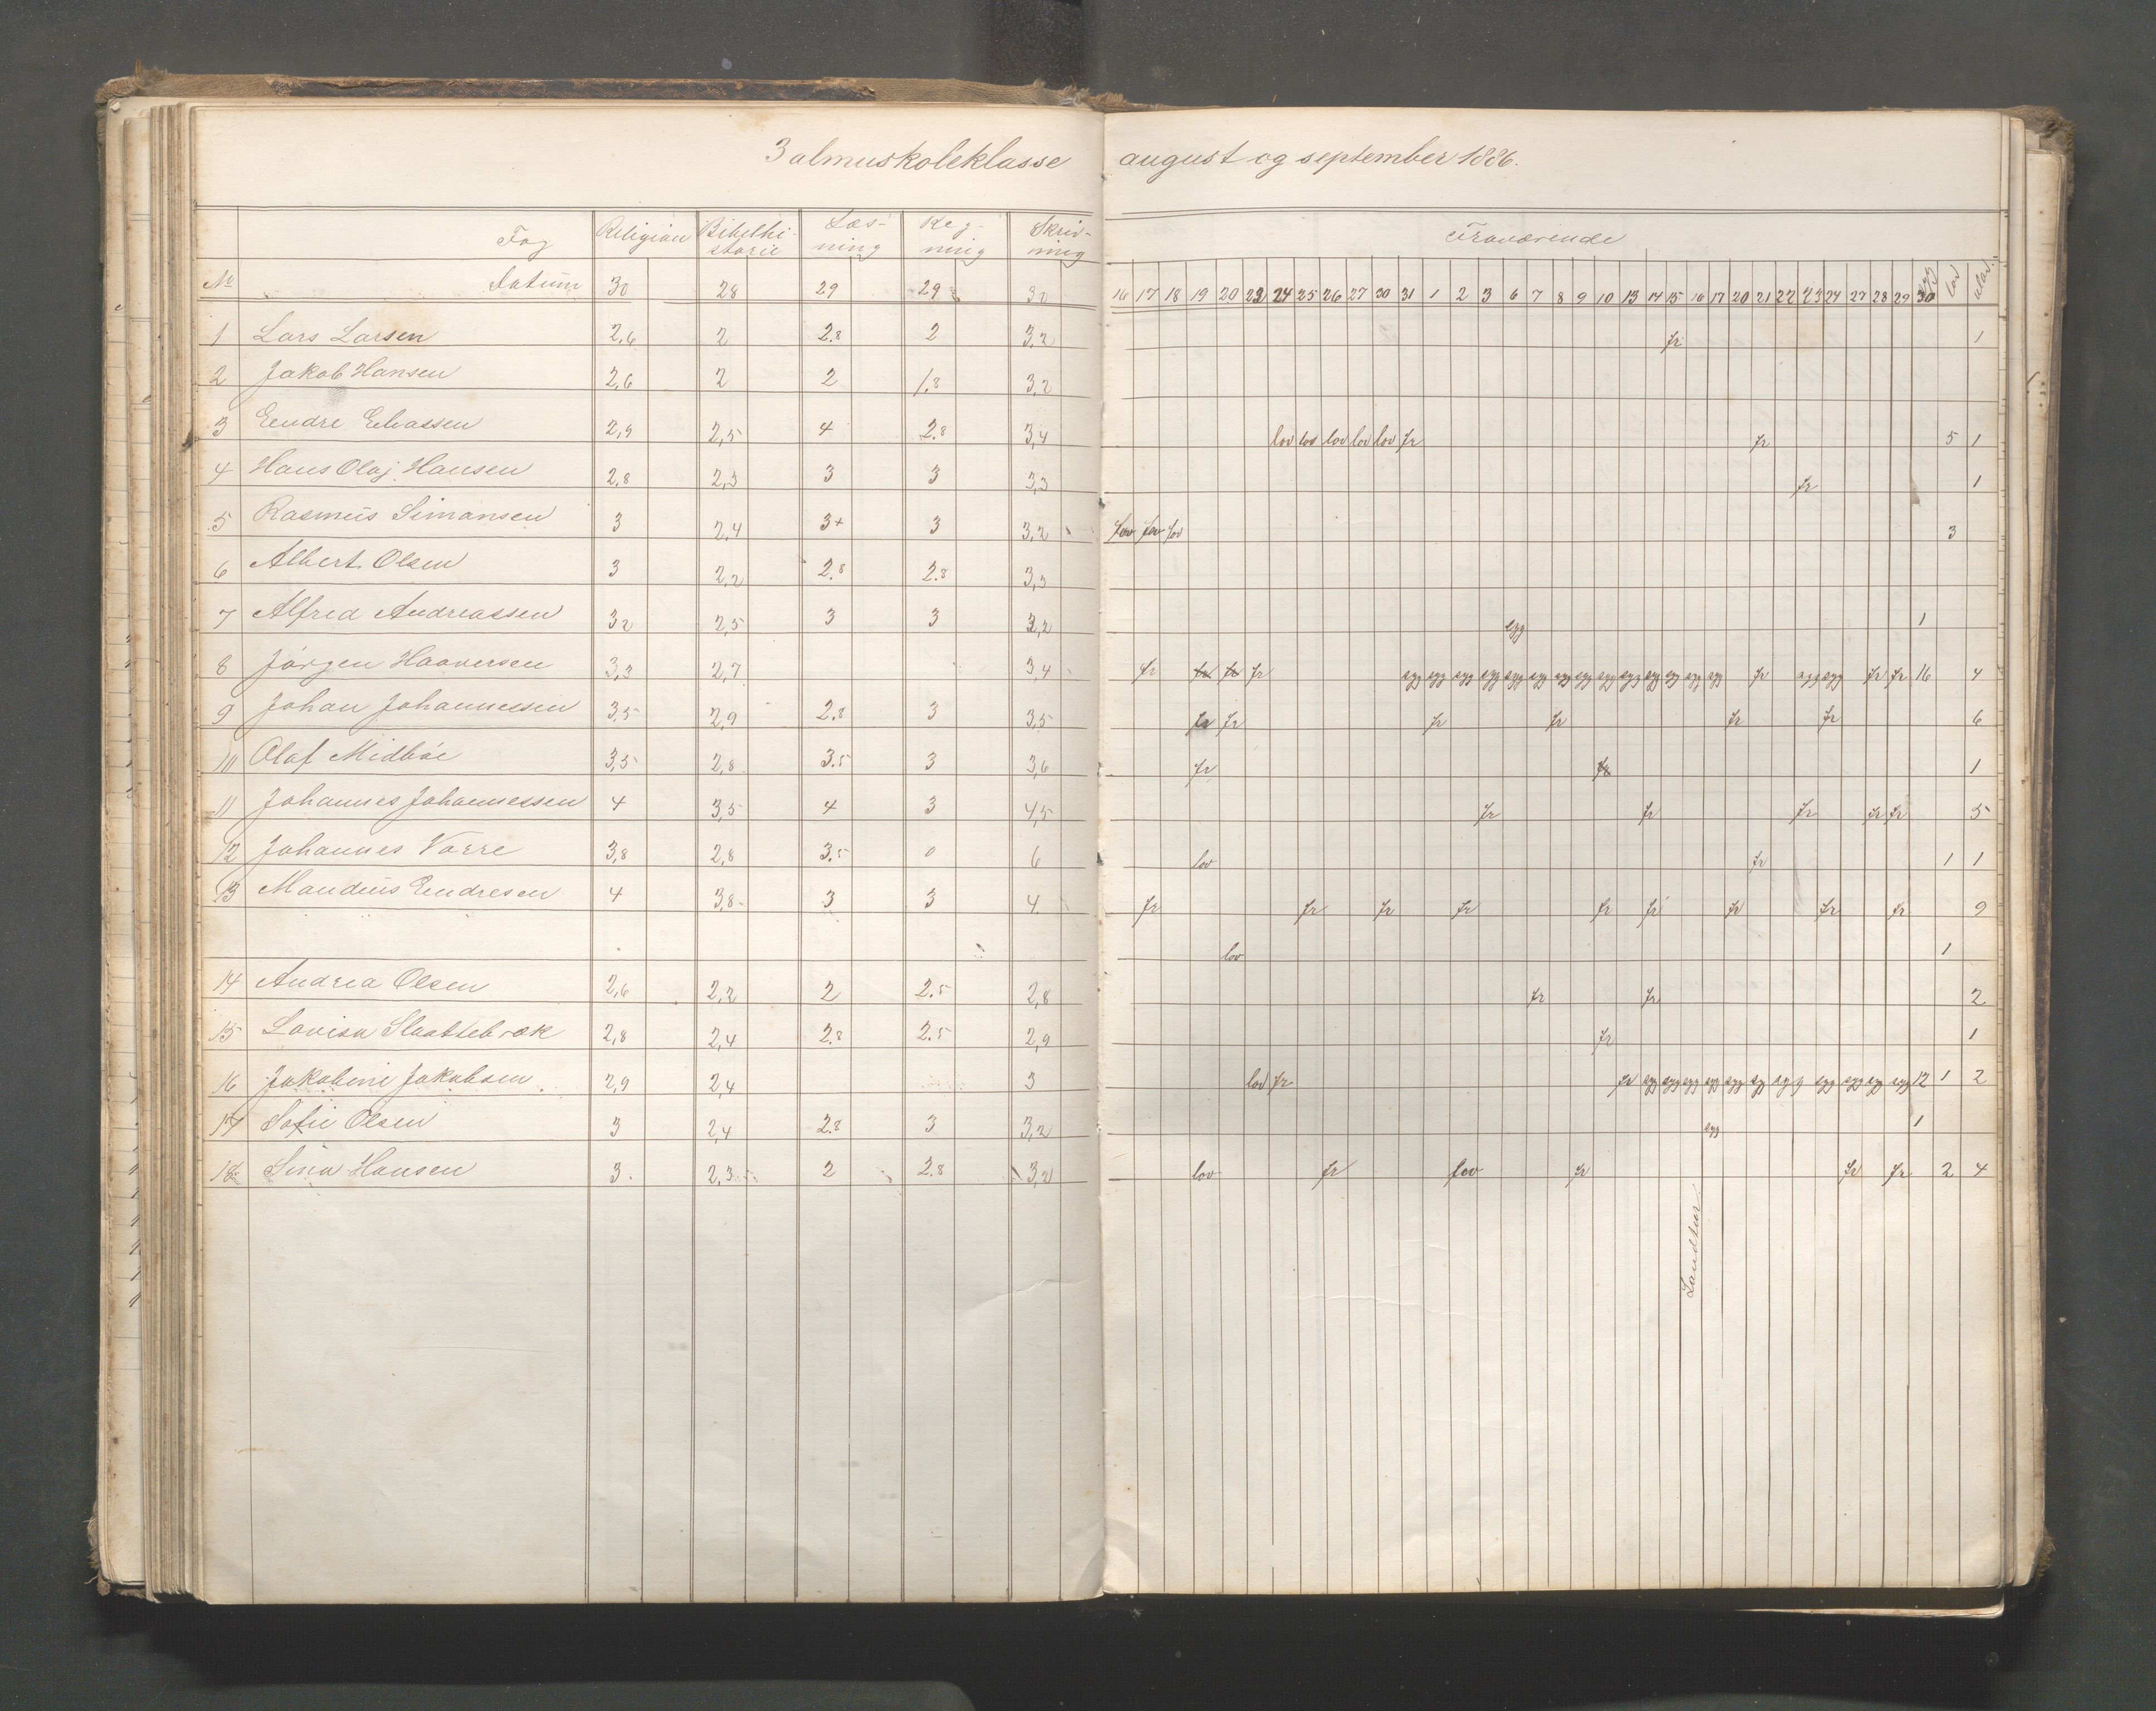 3 almuskoleklasse august og september 1886.
Fag Religion Bibelhi- Læs- Reg- Skriv- Fraværende
storie ning ning ning
No Datum 30 28 29 29 30 16 17 18 19 20 23 24 25 26 27 30 31 1 2 3 6 7 8 9 10 13 14 15 16 17 20 21 22 23 24 27 28 29 30 syg lov ulov.
1 Lars Larsen 2,6 2 2.8 2 3,2 fr 1
2 Jakob Hansen 2,6 2 2 1.8 3,2
3 Eendre Eliassen 2,9 2,5 4 2.8 3,4 lov lov lov lov lov fr fr 5 1
4 Hans Olaj Hansen 2,8 2,3 3 3 3,3 fr 1
5 Rasmus Simonsen 3 2,4 3+ 3 3,2 lov lov lov 3
6 Albert Olsen 3 2,2 2.8 2.8 3,3
7 Alfred Andreassen 3,2 2,5 3 3 3,2 syg 1
8 Jörgen Haaversen 3,3 2,7 3,4 fr fr fr fr syg syg syg syg syg syg syg syg syg syg syg syg syg syg fr syg syg fr fr 16 4
9 Johan Johannessen 3,5 2,9 2.8 3 3,5 fr fr fr fr fr fr 6
10 Olaf Midböe 3,5 2,8 3.5 3 3,6 fr fr 1
11 Johannes Johannessen 4 3,5 4 3 4,5 fr fr fr fr fr 5
12 Johannes Varre 3,8 2,8 3.5 0 6 lov fr 1 1
13 Mandius Endresen 4 3,8 3 3 4 fr fr fr fr fr fr fr fr fr 9
lov 1
14 Andrea Olsen 2,6 2,2 2 2.5 2,8 fr fr 2
15 Lovisa Slaattebræk 2,8 2,4 2.8 2.5 2,9 fr 1
16 Jakobine Jakobsen 2,9 2,4 3 lov fr fr syg syg syg syg syg syg syg syg syg syg syg 12 1 2
17 Sofie Olsen 3 2,4 2.8 3 3,2 syg 1
18 Sina Hansen 3 2,3 2 2.8 3,2 lov fr lov fr fr fr 2 4
Landtur